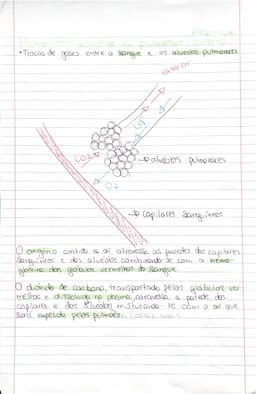 • Trocas de gases entre o sangue e os alvéolos pulmonares
CO2
O2
alvéolos pulmonares
Capilares Sanguíneos
O oxigênio contido no ar atravessa as paredes dos capilares
Sanguíneos e dos alvéolos combinando-se com a hemo-
globina dos glóbulos vermelhos do Sangue.
O dióxido de carbono, transportado pelos glóbulos ver
melhos e dissolvido no plasma, atravessa a parede dos
capilares e dos alvéolos misturando-se com o ar que
será expelido pelos pulmões.